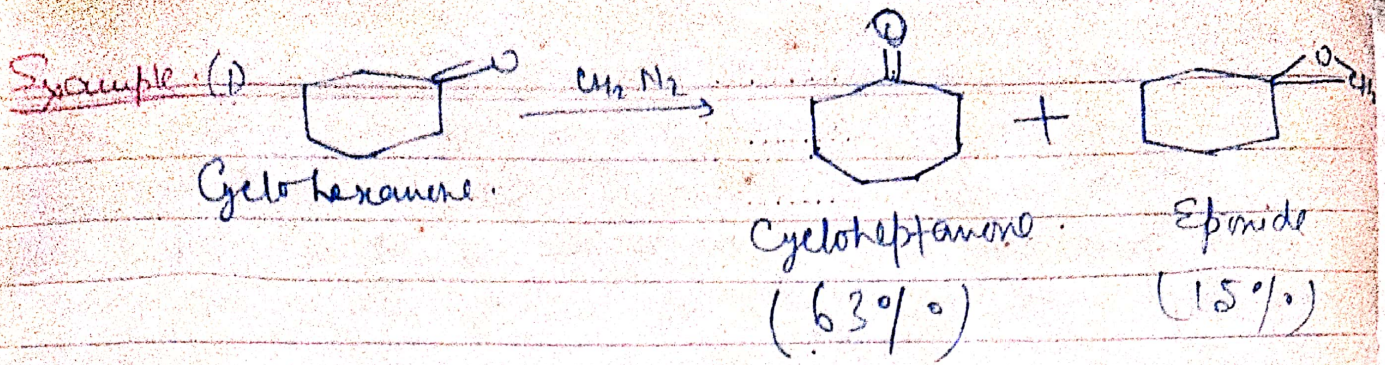 Example: (1) O CH2 N2 O + O CH2
Cyclohexanone.
Cycloheptanone. Epoxide
(63%) (15%)